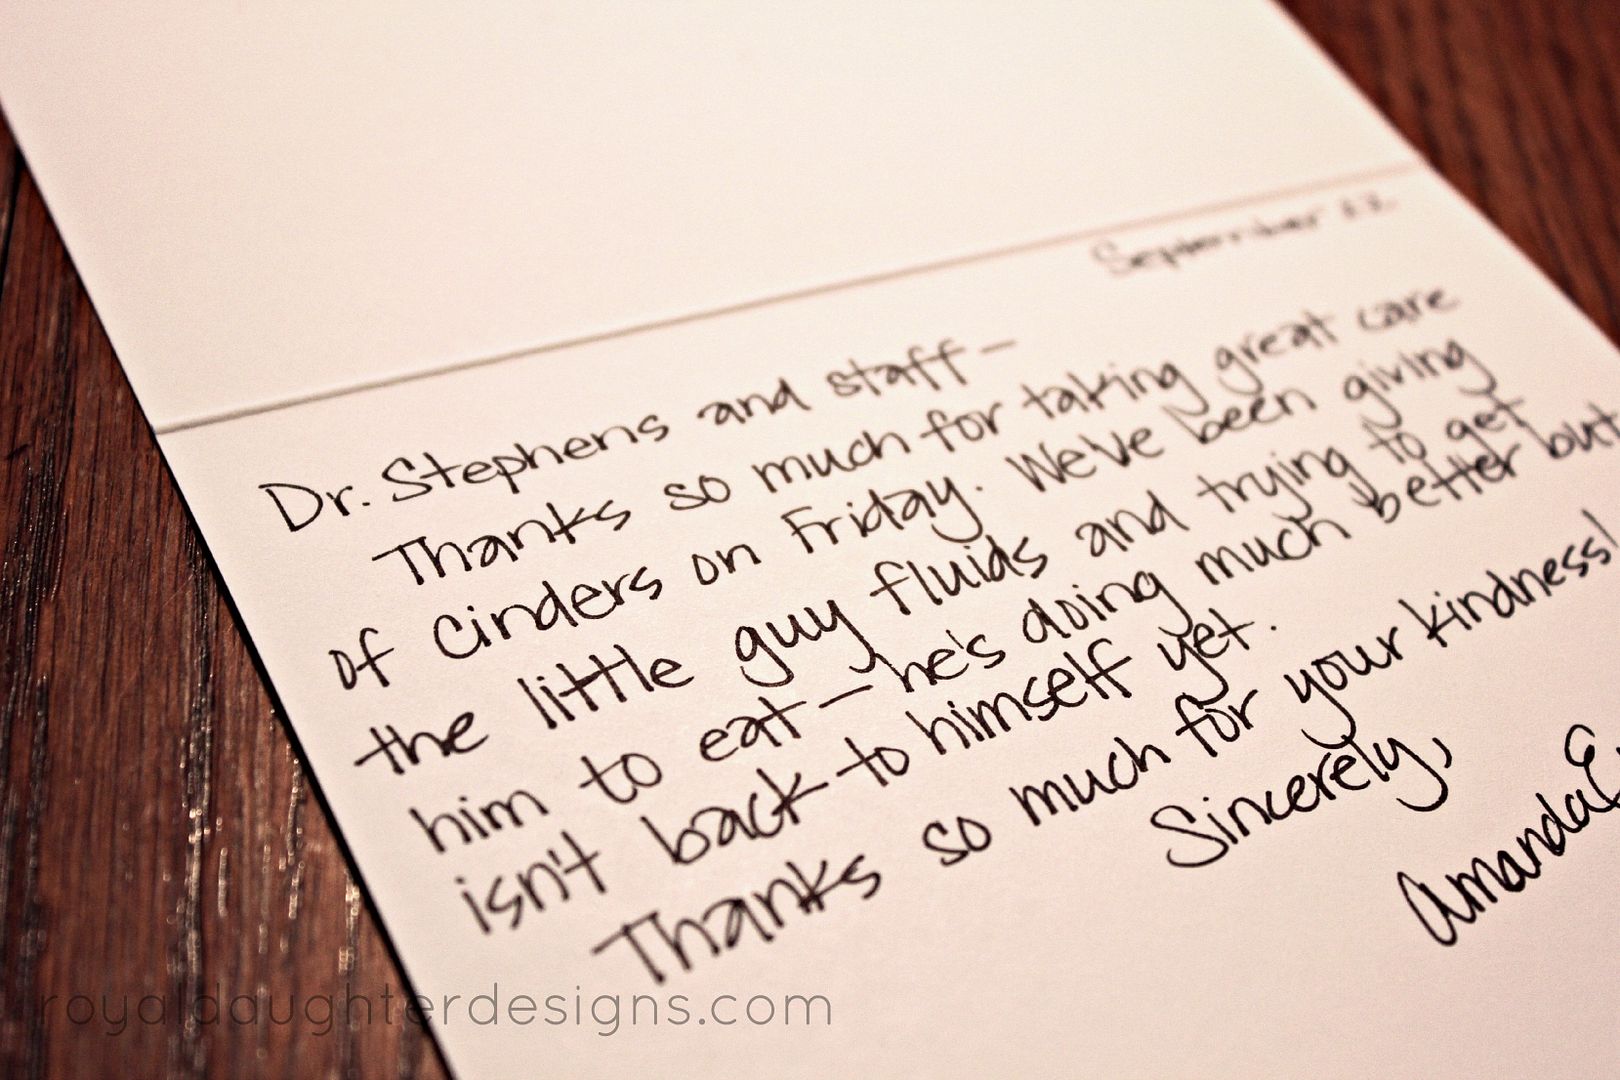 September 22
Dr. Stephens and staff—
Thanks so much for taking great care
of Cinders on Friday. We've been giving
the little guy fluids and trying to get
him to eat—he's doing much better but
isn't back to himself yet.
Thanks so much for your kindness!
Sincerely,
Amanda
royaldaughterdesigns.com